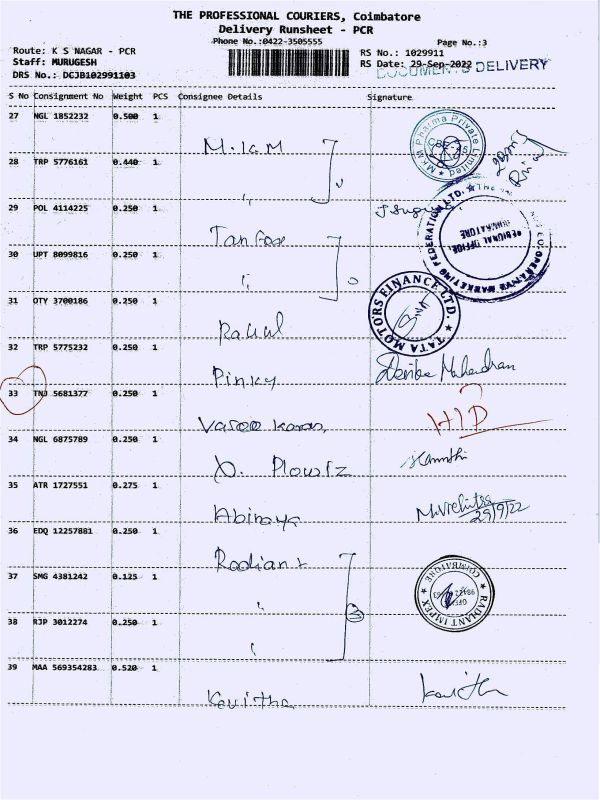 THE PROFESSIONAL COURIERS, Coimbatore
Delivery Runsheet - PCR
Phone No.:0422-3505555
Page No.:3
Route: K S NAGAR - PCR
RS No.: 1029911
Staff: MURUGESH
RS Date: 29-Sep-2022
DOCUMENTS DELIVERY
DRS No.: DCJB102991103
S No Consignment No Weight PCS Consignee Details Signature
27 NGL 1852232 0.500 1
M.K.M
MKM Pharma Private Limited
28 TRP 5776161 0.440 1
"
29 POL 4114225 0.250 1
Tanfose
MARKETING FEDERATION LTD.
REGIONAL OFFICE,
30 UPT 8099816 0.250 1
"
31 OTY 3700186 0.250 1
Rahul
TATA MOTORS FINANCE LTD.
32 TRP 5775232 0.250 1
Pinky
Mahendran
33 TNJ 5681377 0.250 1
34 NGL 6875789 0.250 1
35 ATR 1727551 0.275 1
Abinaya
29/9/22
36 EDQ 12257881 0.250 1
Radiant
37 SMG 4381242 0.125 1
"
RADIANT IMPEX COIMBATORE
38 RJP 3012274 0.250 1
"
39 MAA 569354283 0.520 1
Kavitha